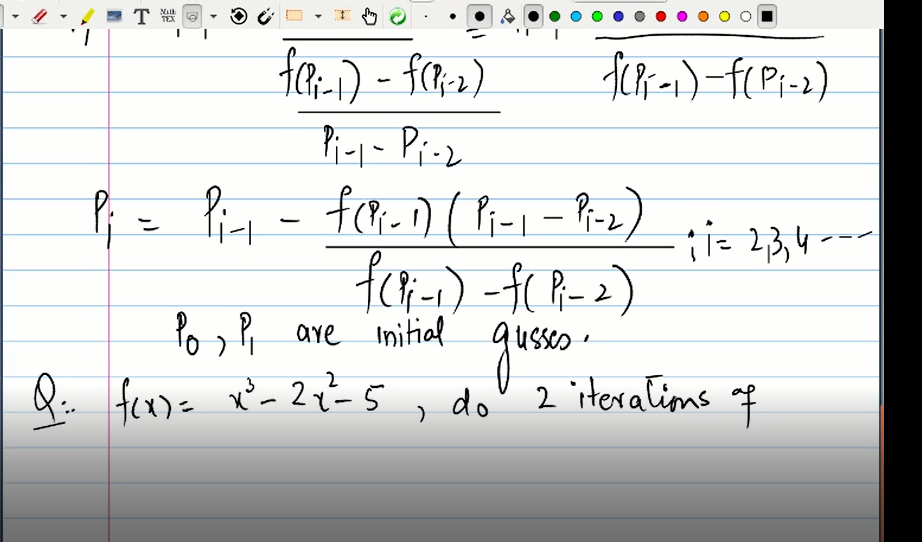 T
Math TEX
f(Pi-1) - f(Pi-2)
f(Pi-1) - f(Pi-2)
Pi-1 - Pi-2
Pi = Pi-1 - f(Pi-1) (Pi-1 - Pi-2)
; i = 2,3,4 ---
f(Pi-1) - f(Pi-2)
P0, P1 are initial gusses.
Q:. f(x) = x³ - 2x² - 5 , do 2 iterations of